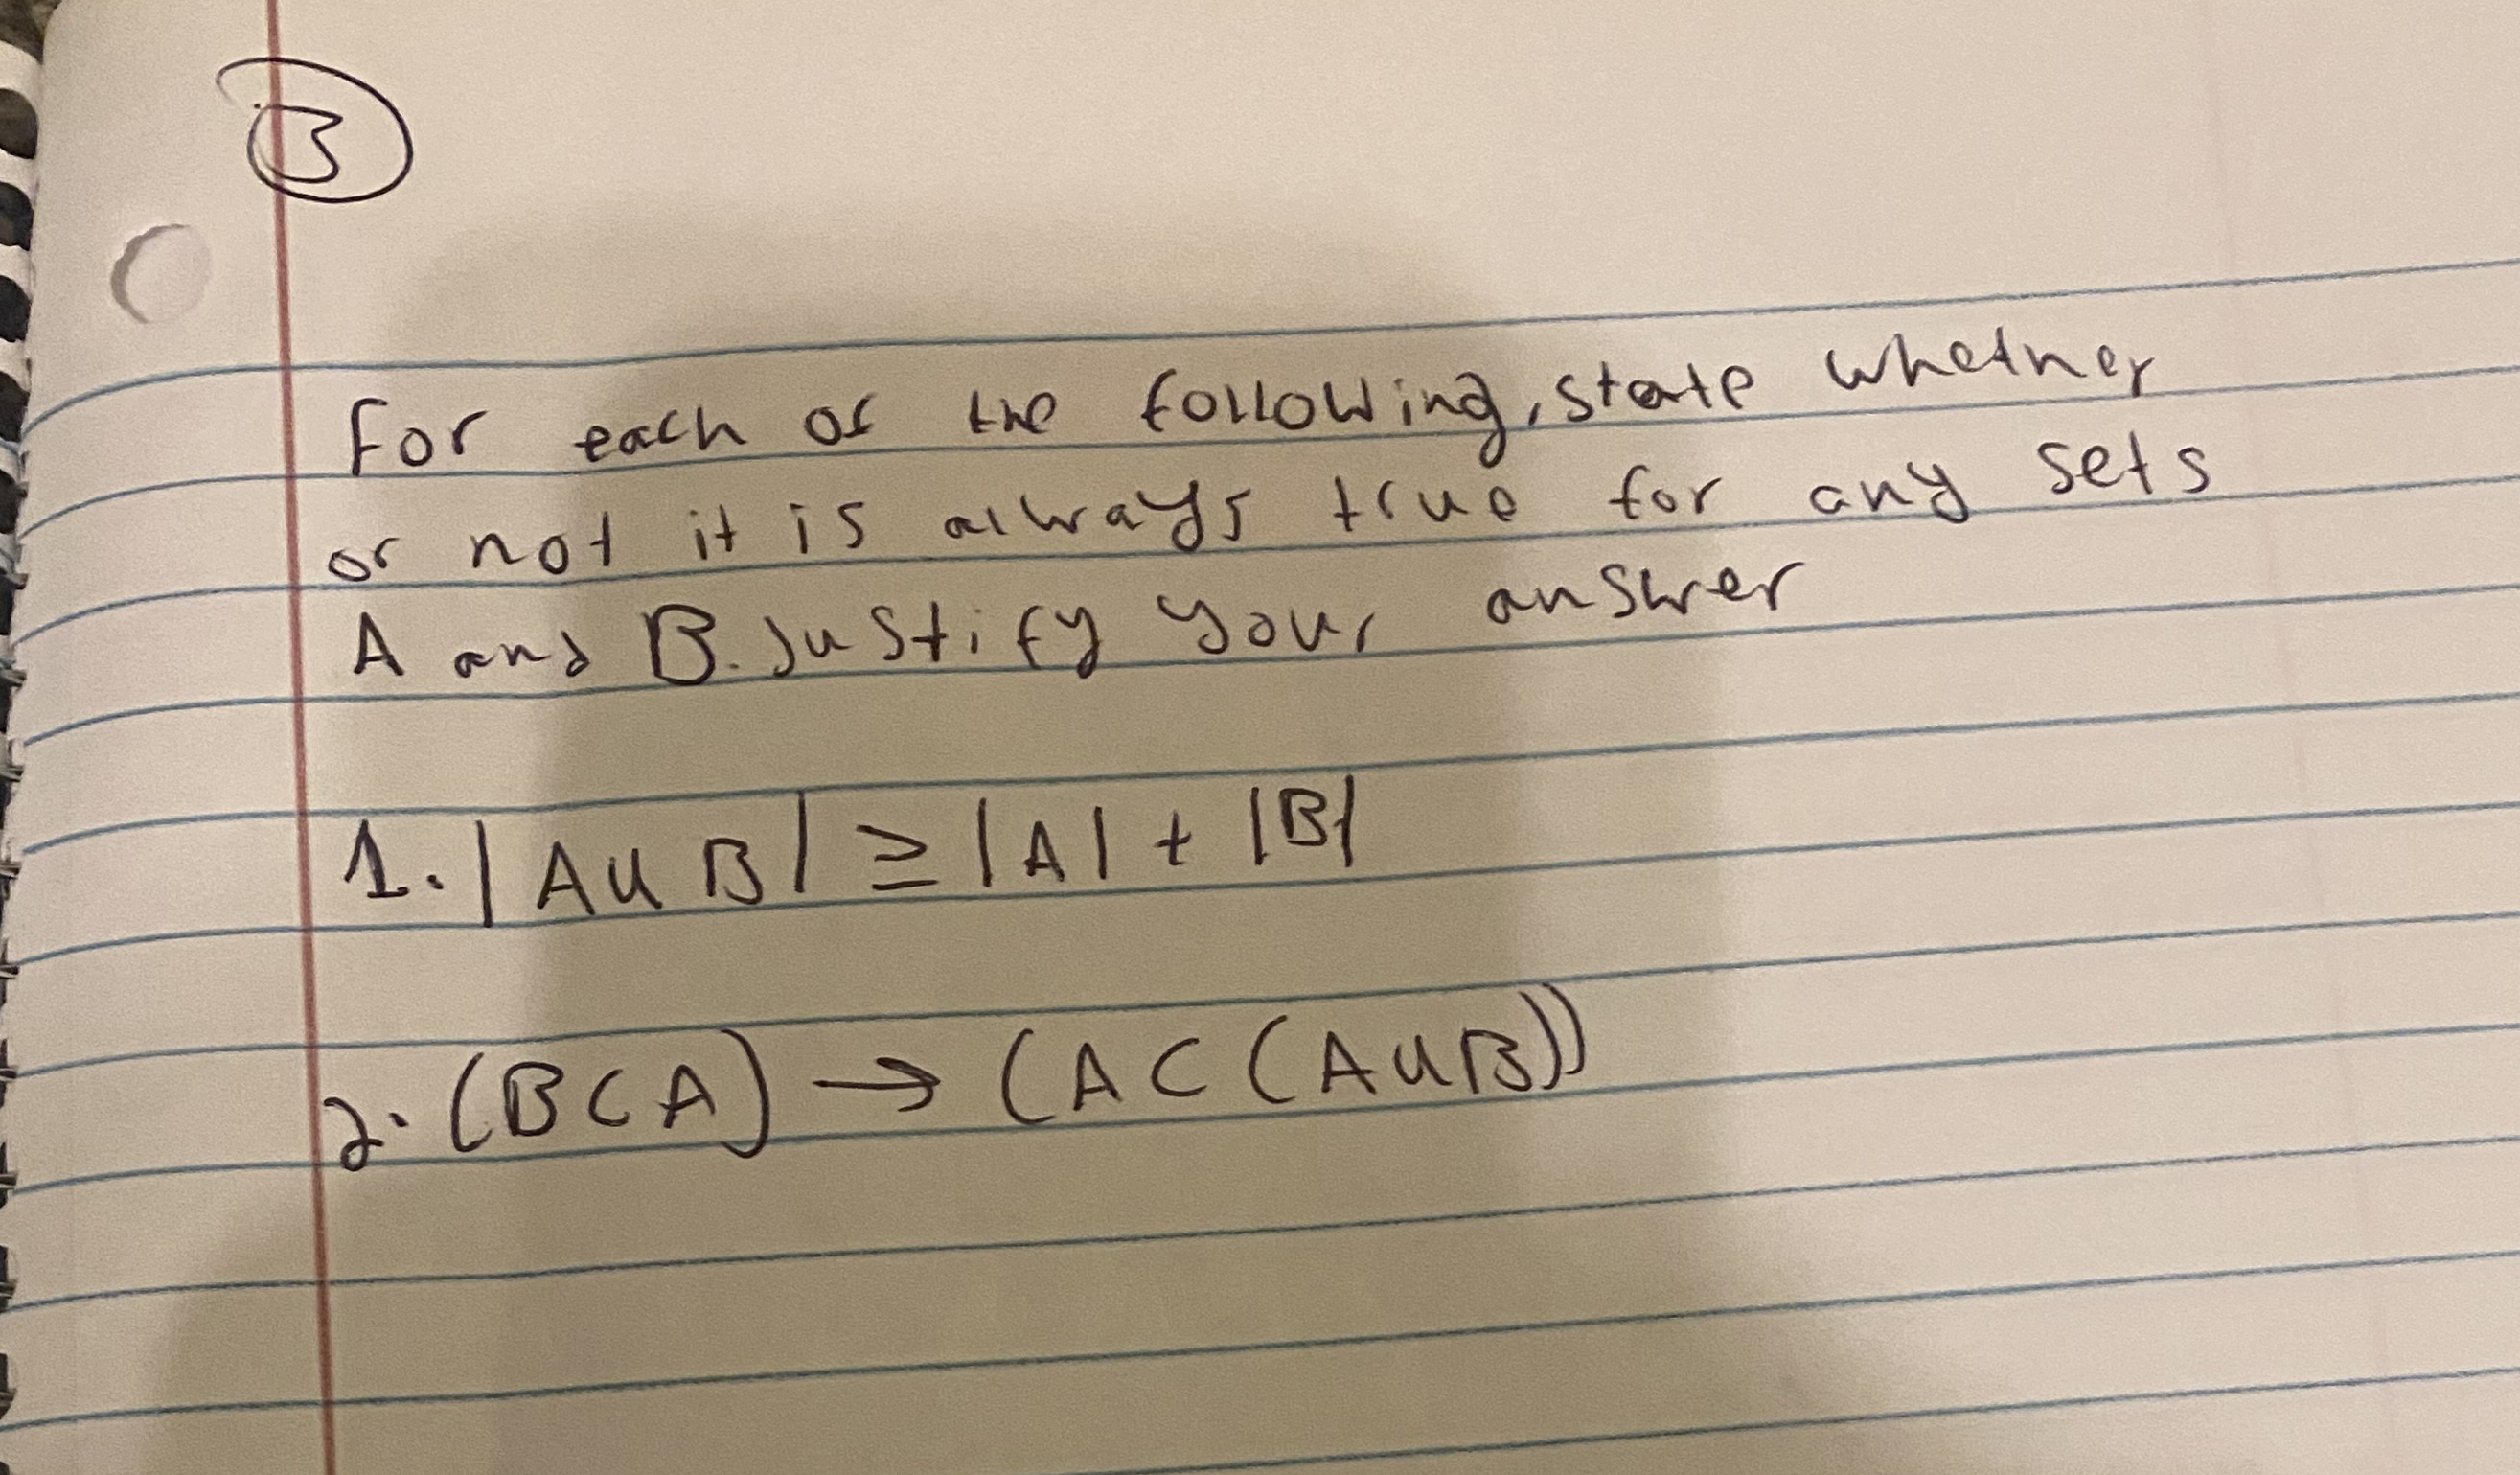 3
For each of the following, state whether
or not it is always true for any sets
A and B. Justify your answer
1. |A ∪ B| ≥ |A| + |B|
2. (B ⊂ A) → (A ⊂ (A ∪ B))